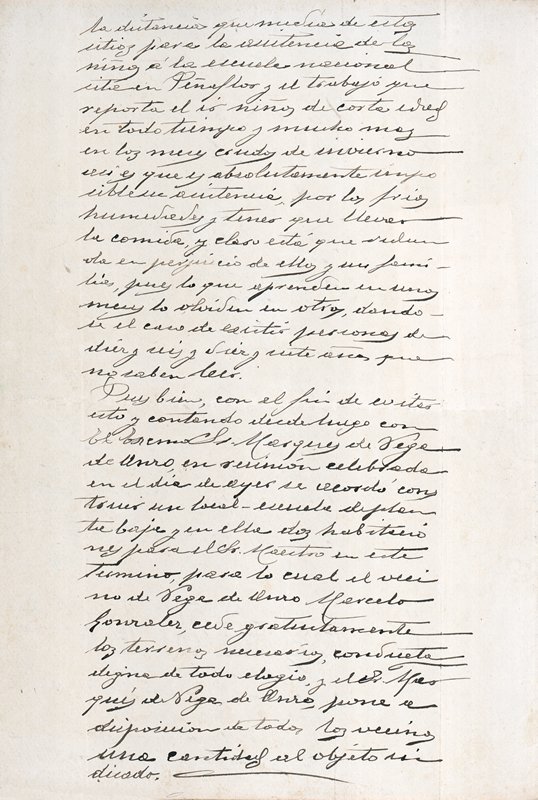 la distancia que media de estos
sitios para la asistencia de los
niños á la escuela nacional
sita en Peñaflor y el trabajo que
reporta el ir niños de corta edad
en todo tiempo y mucho mas
en los muy crudos de invierno
asi es que es absolutamente impo
sible su asistencia, por los frios
humedades y tener que llevar
la comida, y claro está que redun
da en perjuicio de ellos y sus fami-
lia, pues lo que aprenden en unos
meses lo olvidan en otros, dando-
se el caso de existir personas de
diez y seis y diez y siete años que
no saben leer.
Pues bien, con el fin de evitar
esto y contando desde luego con
el Excmo Sr. Marques de Vega
de Anzo, en reunión celebrada
en el día de ayer se acordó cons
truir un local-escuela de plan
ta baja y en ella dos habitacio
nes para el Sr. Maestro en este
termino, para lo cual el veci
no de Vega de Anzo Marcelo
Gonzalez, cede gratuitamente
los terrenos necesarios, conducta
digna de todo elogio, y el Sr. Mar
qués de Vega de Anzo, pone a
disposicion de todos los vecinos
una cantidad al objeto in
dicado.